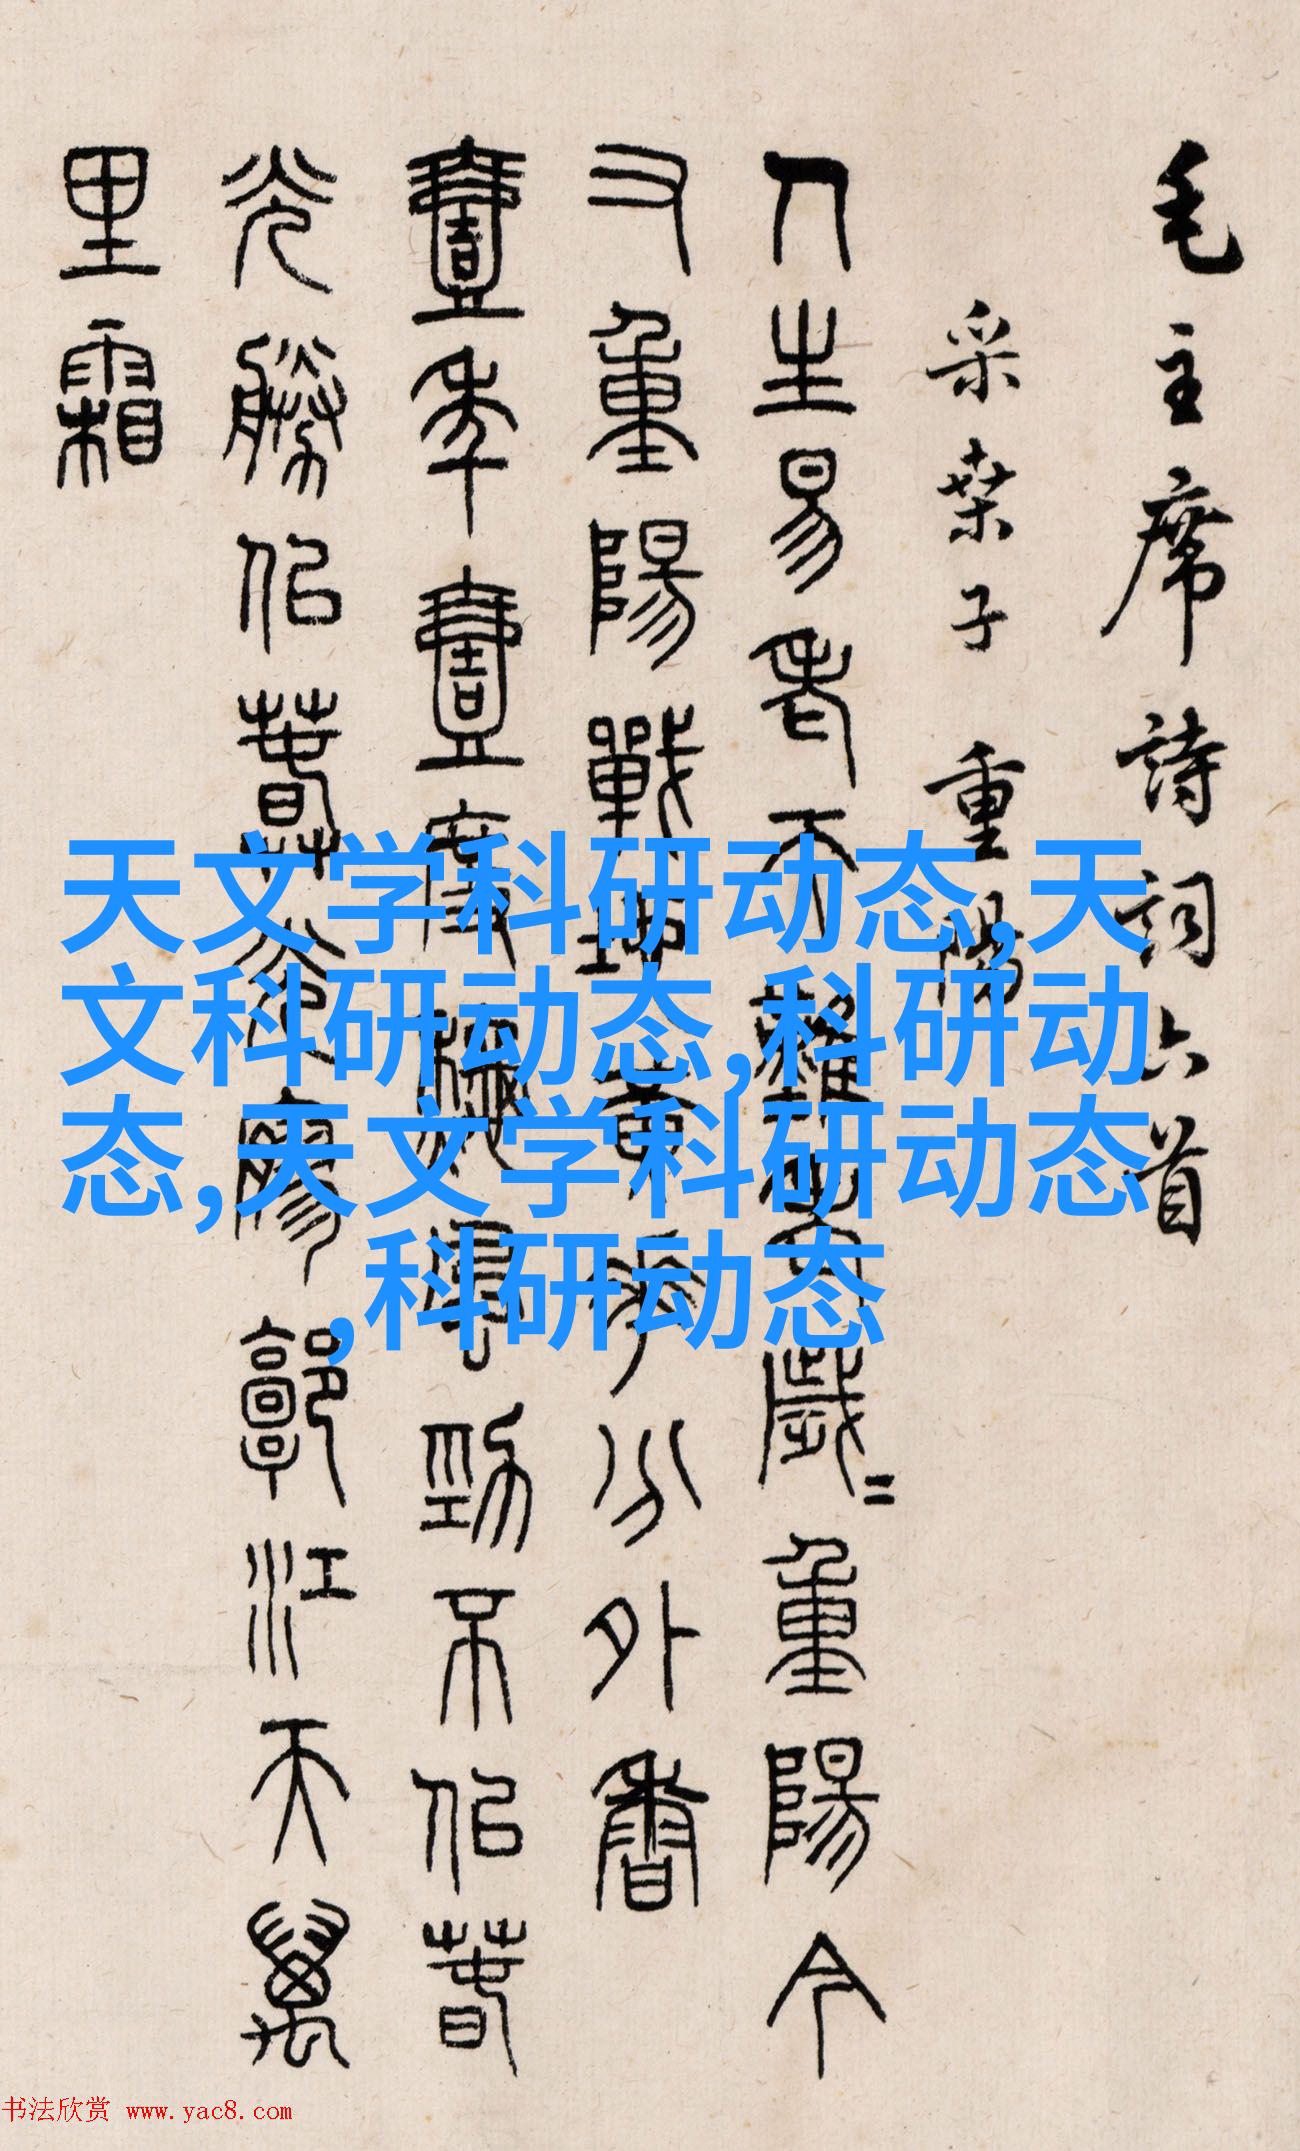 毛主席詩詞六首
采桑子 重陽
人生易老天難老歲〻重陽今
又重陽戰地黄華分外香
壹年壹度秋風勁不佀春
光勝佀春光廖郭江天萬
里霜
天文学科研动态,天
文科研动态,科研动
态,天文学科研动态
,科研动态
书法欣赏 www.yac8.com